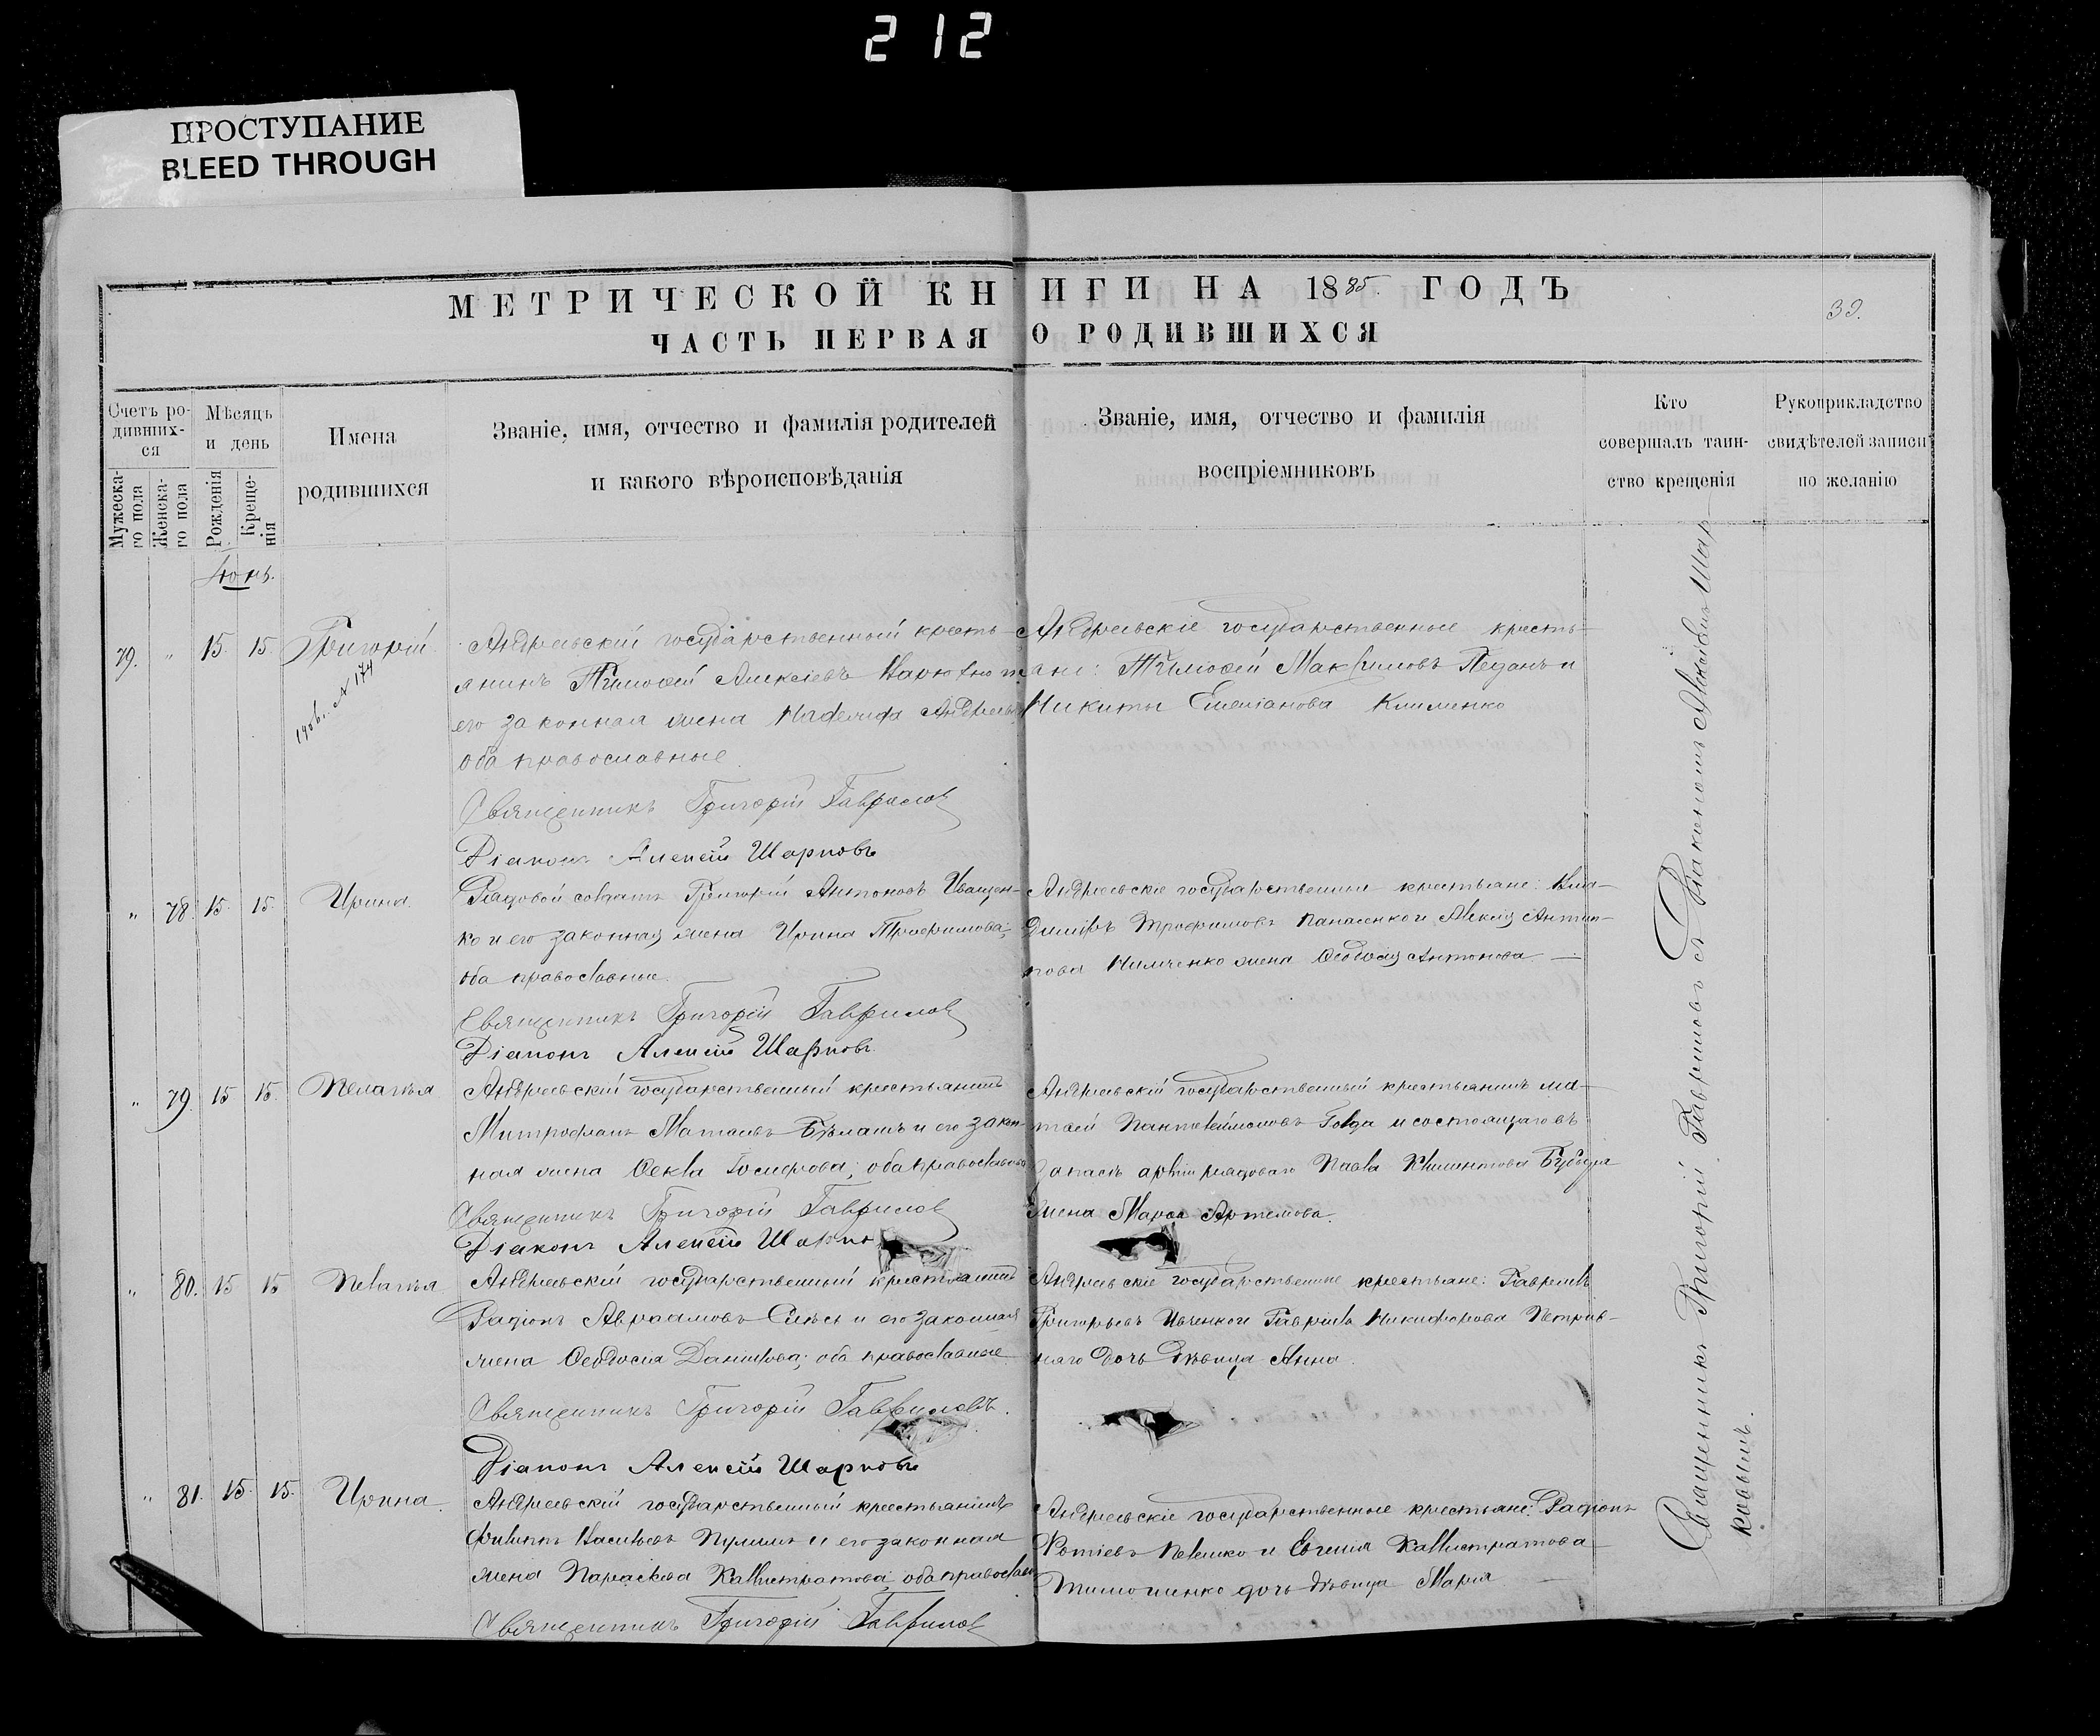 212
ПРОСТУПАНИЕ
BLEED THROUGH
МЕТРИЧЕСКОЙ КНИГИ НА 1885 ГОДЪ
39.
ЧАСТЬ ПЕРВАЯ О РОДИВШИХСЯ
Счетъ ро-
дивших-
ся
Мужеска-
го пола
Женска-
го пола
Мѣсяцъ
и день
Рожденія
Креще-
нія
Имена
родившихся
Званіе, имя, отчество и фамилія родителей
и какого вѣроисповѣданія
Званіе, имя, отчество и фамилія
воспріемниковъ
Кто
совершалъ таин-
ство крещенія
Рукоприкладство
свидѣтелей записи
по желанію
Іюнь.
79. " 15. 15. Григорій
Андреевскій государственный кресть-
янинъ Тимофей Алексіевъ
его законная жена Андреева
оба православные.
Священникъ Григорій Гаврилов
Діаконъ Алексій Шарковъ
Андреевскіе государственные кресть-
яне: Тимофей Максимовъ Педанъ и
Никиты Емеліанова Клименко
" 78. 15. 15. Ирина.
Рядовой солдатъ Григорій Антоновъ Иващен-
ко и его законная жена Ирина Трофимова;
оба православные.
Священникъ Григорій Гаврилов
Діаконъ Алексій Шарковъ
Андреевскіе государственные крестьяне:
Трофимовъ Панасенко и Алексія Анти-
пова жена Ѳеодосія Антонова —
" 79. 15 15. Пелагѣя
Андреевскій государственный крестьянинъ
Митрофанъ Матвѣевъ Бѣлашъ и его закон-
ная жена Ѳекла оба православные
Священникъ Григорій Гаврилов
Діаконъ Алексій Шарко
Андреевскій государственный крестьянинъ Ма-
тѳей Пантелеймоновъ и состоящаго въ
запасѣ арміи рядоваго Павла Климентова
жена Марѳа Артемова.
" 80. 15 15 Пелагѣя
Андреевскій государственный крестьянинъ
Радіонъ Авраамовъ и его законная
жена Ѳеодосія Данилова; оба православные
Священникъ Григорій Гавриловъ.
Діаконъ Алексій Шарковъ
Андреевскіе государственные крестьяне: Гавріилъ
Григорьевъ Ивченко и Гавріила Никифорова Петрив-
няго дочь дѣвица Анна.
" 81. 15. 15. Ирина.
Андреевскій государственный крестьянинъ
Филиппъ Васильевъ и его законная
жена Параскева Каллистратова; оба православн
Священникъ Григорій Гаврилов
Андреевскіе государственные крестьяне: Радіонъ
Фотіевъ и Евгенія Каллистратова
Тимошенко дочь дѣвица Марія —
Священникъ Григорій Гавриловъ съ Діакономъ Алексѣемъ Шар-
ковымъ.